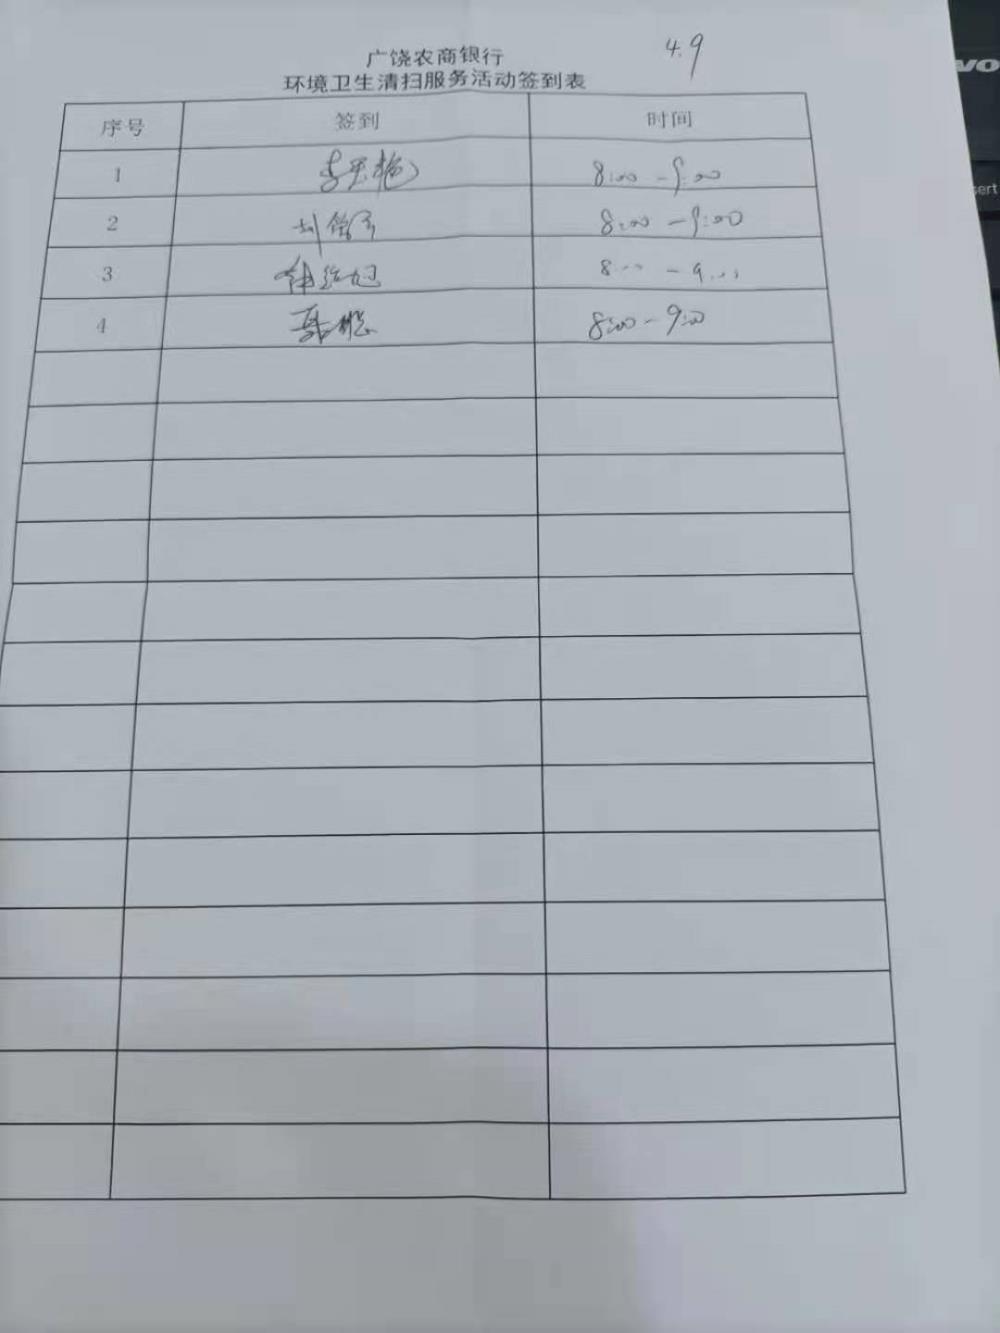 4.9
广饶农商银行
环境卫生清扫服务活动签到表
序号 签到 时间
1 8:00-9:00
2 8:00-9:00
3 8:00-9:00
4 8:00-9:00